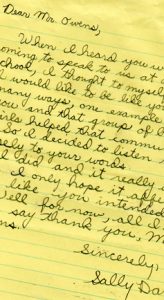 Dear Mr. Owens,
When I heard you
coming to speak to us at
school, I thought to myself
I would like to be like yo
many ways, one example
you and that group of
irls helped that commu
So I decided to listen
sely to your words
I did and it really
I only hope it aff
like you intended
Well for now, all I
say thank you, M
ns.
Sincerely,
Sally Da